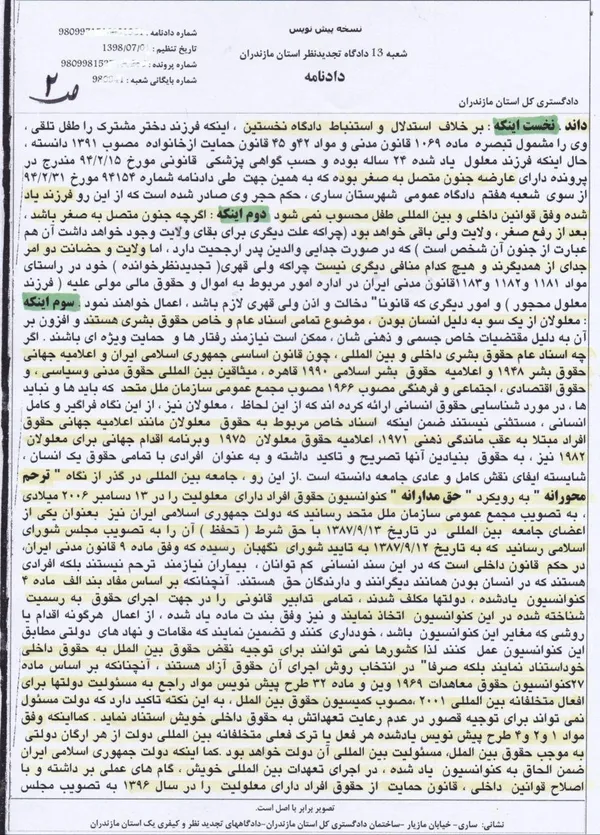 نسخه پیش نویس
شماره دادنامه :
شعبه 13 دادگاه تجدیدنظر استان مازندران
تاریخ تنظیم : 1398/07/0
دادنامه
شماره پرونده :
شماره بایگانی شعبه :
ص ۲
دادگستری کل استان مازندران
داند. نخست اینکه : بر خلاف استدلال و استنباط دادگاه نخستین ، اینکه فرزند دختر مشترک را طفل تلقی ،
وی را مشمول تبصره ماده ۱۰۶۹ قانون مدنی و مواد ۴۲و ۴۵ قانون حمایت ازخانواده مصوب ۱۳۹۱ دانسته ،
حال اینکه فرزند معلول یاد شده ۲۴ ساله بوده و حسب گواهی پزشکی قانونی مورخ ۹۴/۲/۱۵ مندرج در
پرونده دارای عارضه جنون متصل به صغر بوده که به همین جهت طی دادنامه شماره ۹۴۱۵۴ مورخ ۹۴/۲/۳۱
از سوی شعبه هفتم دادگاه عمومی شهرستان ساری ، حکم حجر وی صادر شده است که از این رو فرزند یاد
شده وفق قوانین داخلی و بین المللی طفل محسوب نمی شود .دوم اینکه : اگرچه جنون متصل به صغر باشد ،
بعد از رفع صغر ، ولایت ولی باقی خواهد بود (چراکه علت دیگری برای بقای ولایت وجود خواهد داشت آن هم
عبارت از جنون آن شخص است ) که در صورت جدایی والدین پدر ارجحیت دارد ، اما ولایت و حضانت دو امر
جدای از همدیگرند و هیچ کدام منافی دیگری نیست چراکه ولی قهری(تجدیدنظرخوانده ) خود در راستای
مواد ۱۱۸۱ و۱۱۸۲ و۱۱۸۳قانون مدنی ایران در اداره امور مربوط به اموال و حقوق مالی مولی علیه ( فرزند
معلول محجور ) و امور دیگری که قانونا" دخالت و اذن ولی قهری لازم باشد ، اعمال خواهند نمود .سوم اینکه
: معلولان از یک سو به دلیل انسان بودن ، موضوع تمامی اسناد عام و خاص حقوق بشری هستند و افزون بر
آن به دلیل مقتضیات خاص جسمی و ذهنی شان ، ممکن است نیازمند رفتار ها و حمایت ویژه ای باشند. اگر
چه اسناد عام حقوق بشری داخلی و بین المللی ، چون قانون اساسی جمهوری اسلامی ایران و اعلامیه جهانی
حقوق بشر ۱۹۴۸ و اعلامیه حقوق بشر اسلامی ۱۹۹۰ قاهره ، میثاقین بین المللی حقوق مدنی وسیاسی ، و
حقوق اقتصادی ، اجتماعی و فرهنگی مصوب ۱۹۶۶ مصوب مجمع عمومی سازمان ملل متحد که باید ها و نباید
ها ، در مورد شناسایی حقوق انسانی ارائه کرده اند که از این لحاظ ، معلولان نیز ، از این نگاه فراگیر و کامل
انسانی ، مستثنی نیستند ضمن اینکه اسناد خاص مربوط به حقوق معلولان مانند اعلامیه جهانی حقوق
افراد مبتلا به عقب ماندگی ذهنی ۱۹۷۱، اعلامیه حقوق معلولان ۱۹۷۵ وبرنامه اقدام جهانی برای معلولان
۱۹۸۲ نیز ، به حقوق بنیادین آنها تصریح و تاکید داشته و به عنوان افرادی با تمامی حقوق یک انسان ،
شایسته ایفای نقش کامل و عادی جامعه دانسته است .از این رو ، جامعه بین المللی در گذر از نگاه " ترحم
محورانه " به رویکرد " حق مدارانه " کنوانسیون حقوق افراد دارای معلولیت را در ۱۳ دسامبر ۲۰۰۶ میلادی
، به تصویب مجمع عمومی سازمان ملل متحد رسانید که دولت جمهوری اسلامی ایران نیز بعنوان یکی از
اعضای جامعه بین المللی در تاریخ ۱۳۸۷/۹/۱۳ با حق شرط ( تحفظ ) آن را به تصویب مجلس شورای
اسلامی رسانید که به تاریخ ۱۳۸۷/۹/۱۲ به تایید شورای نگهبان رسیده که وفق ماده ۹ قانون مدنی ایران،
در حکم قانون داخلی است که در این سند انسانی کم توانان ، بیماران نیازمند ترحم نیستند بلکه افرادی
هستند که در انسان بودن همانند دیگرانند و دارندگان حق هستند. آنچنانکه بر اساس مفاد بند الف ماده ۴
کنوانسیون یادشده ، دولتها مکلف شدند، تمامی تدابیر قانونی را در جهت اجرای حقوق به رسمیت
شناخته شده در این کنوانسیون اتخاذ نمایند و نیز وفق بند ت ماده یاد شده ، از اعمال هرگونه اقدام یا
روشی که مغایر این کنوانسیون باشد ، خودداری کنند و تضمین نمایند که مقامات و نهاد های دولتی مطابق
این کنوانسیون عمل کنند لذا کشورها نمی توانند برای توجیه نقض حقوق بین الملل به حقوق داخلی
خوداستناد نمایند بلکه صرفا" در انتخاب روش اجرای آن حقوق آزاد هستند ، آنچنانکه بر اساس ماده
۲۷کنوانسیون حقوق معاهدات ۱۹۶۹ وین و ماده ۳۲ طرح پیش نویس مواد راجع به مسئولیت دولتها برای
افعال متخلفانه بین المللی ۲۰۰۱ ،مصوب کمیسیون حقوق بین الملل ، به این نکته تاکید دارد که دولت مسئول
نمی تواند برای توجیه قصور در عدم رعایت تعهداتش به حقوق داخلی خویش استناد نماید . کمااینکه وفق
مواد ۱ و۲ و۴ طرح پیش نویس یادشده هر فعل یا ترک فعلی متخلفانه بین المللی دولت از هر ارگان دولتی
به موجب حقوق بین الملل، مسئولیت بین المللی آن دولت خواهد بود .کما اینکه دولت جمهوری اسلامی ایران
ضمن الحاق به کنوانسیون یاد شده ، در اجرای تعهدات بین المللی خویش ، گام های عملی بر داشته و با
اصلاح قوانین داخلی ، قانون حمایت از حقوق افراد دارای معلولیت را در سال ۱۳۹۶ به تصویب مجلس
تصویر برابر با اصل است.
نشانی: ساری-خیابان مازیار -ساختمان دادگستری کل استان مازندران-دادگاههای تجدید نظر و کیفری یک استان مازندران